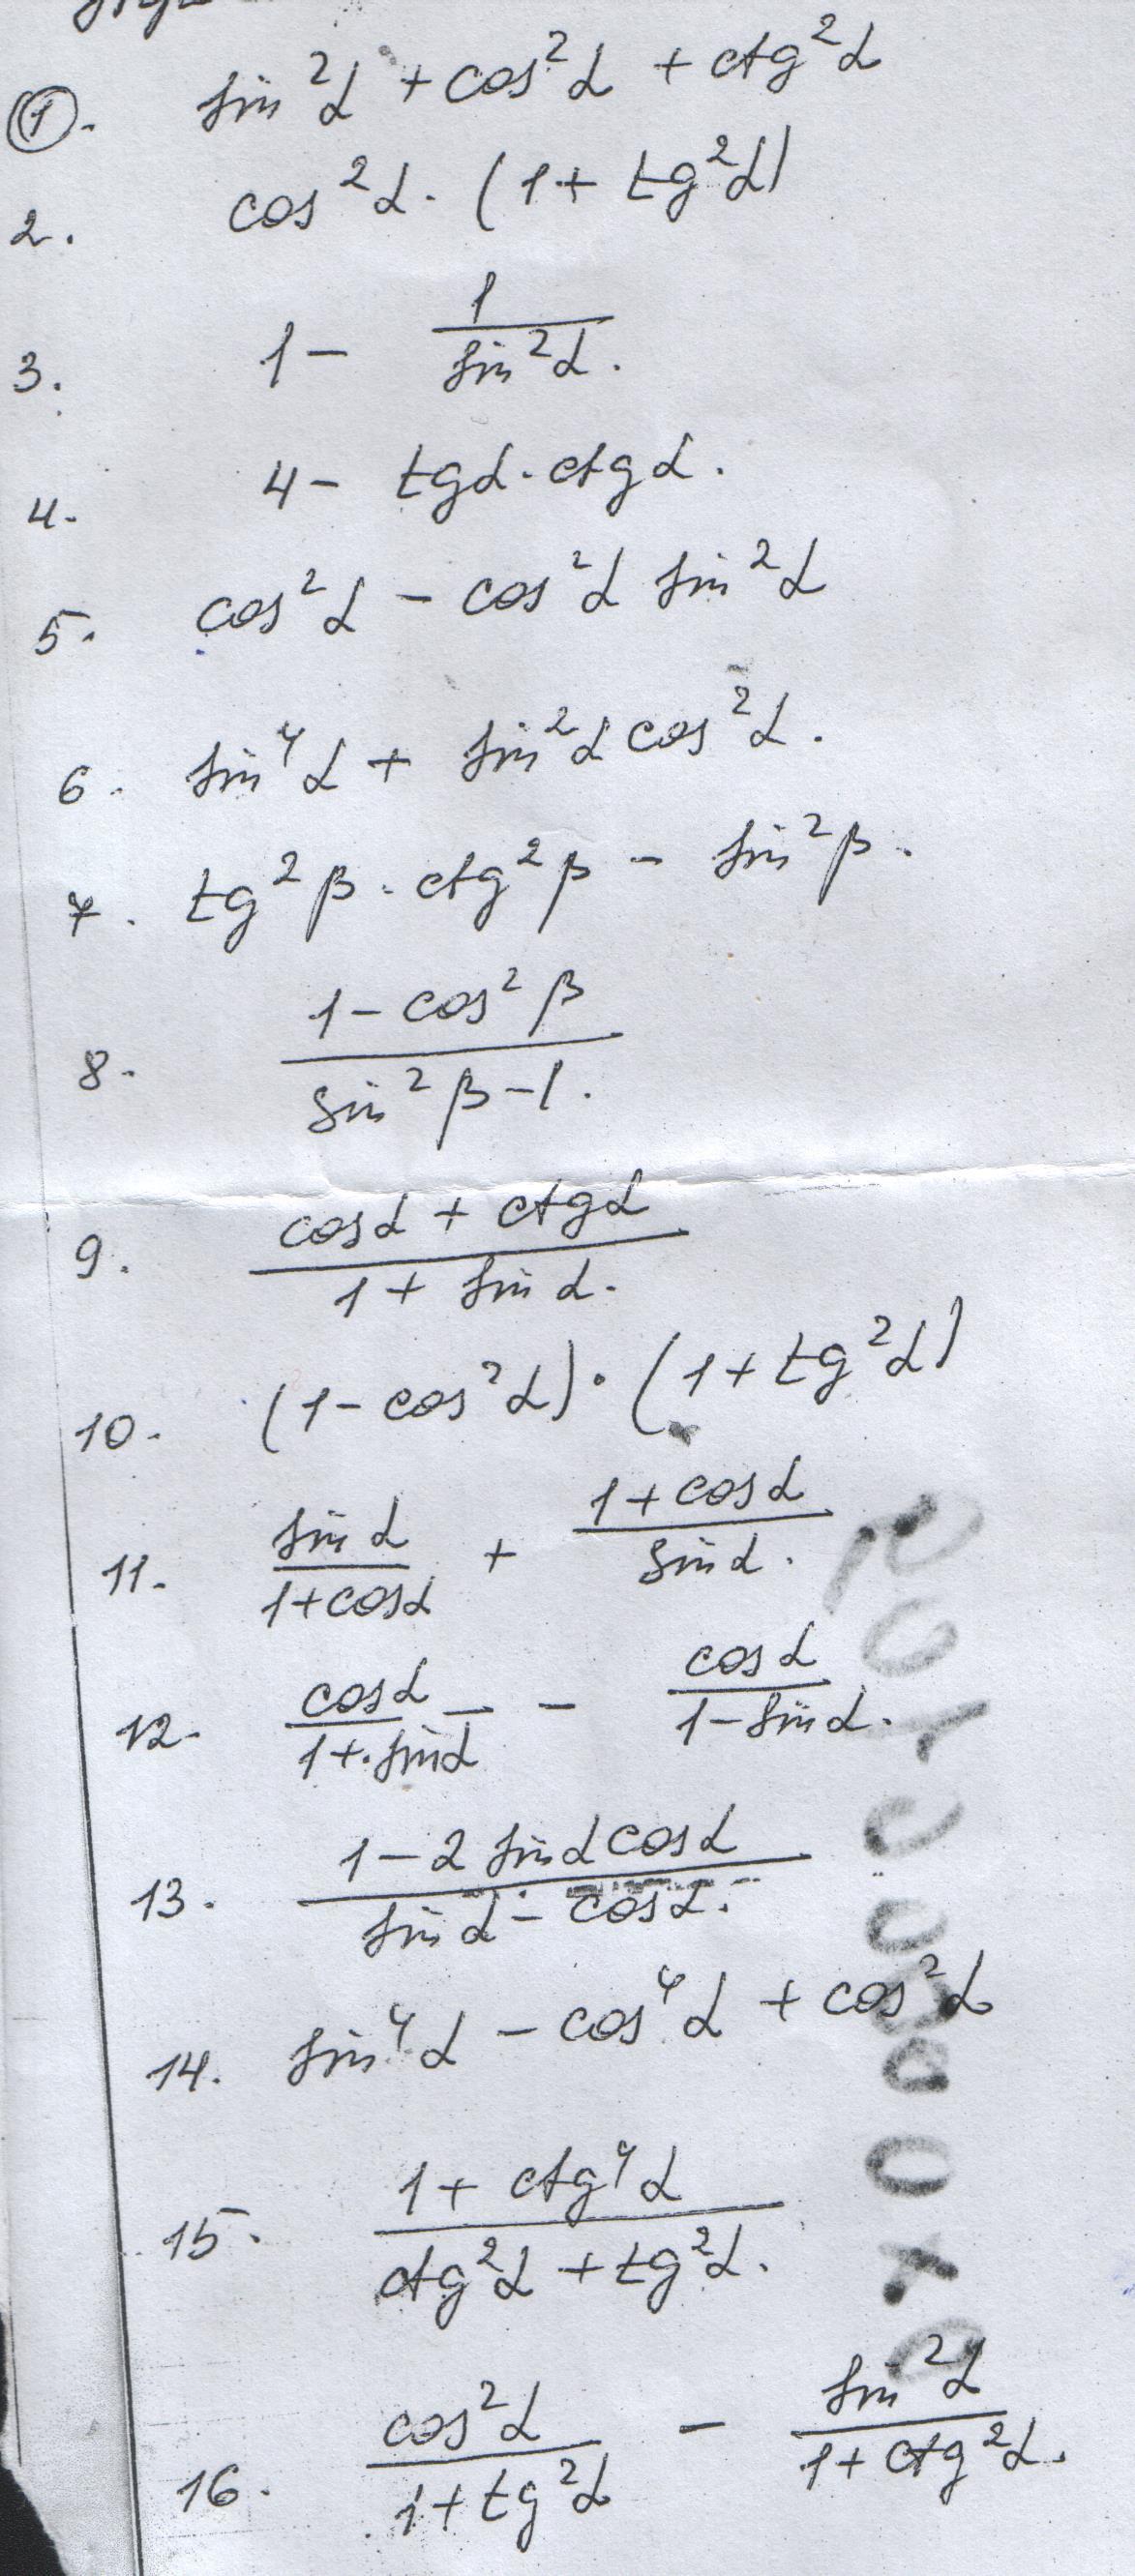 ①. sin²α + cos²α + ctg²α
2. cos²α · (1 + tg²α)
3. 1 - 1/sin²α.
4. 4 - tgα · ctgα.
5. cos²α - cos²α sin²α
6. sin⁴α + sin²α cos²α.
7. tg²β · ctg²β - sin²β.
8. (1 - cos²β)/(sin²β - 1).
9. (cosα + ctgα)/(1 + sinα).
10. (1 - cos²α) · (1 + tg²α)
11. sinα/(1 + cosα) + (1 + cosα)/sinα.
12. cosα/(1 + sinα) - cosα/(1 - sinα).
13. (1 - 2 sinα cosα)/(sinα - cosα).
14. sin⁴α - cos⁴α + cos²α
15. (1 + ctg⁴α)/(ctg²α + tg²α).
16. cos²α/(1 + tg²α) - sin²α/(1 + ctg²α).